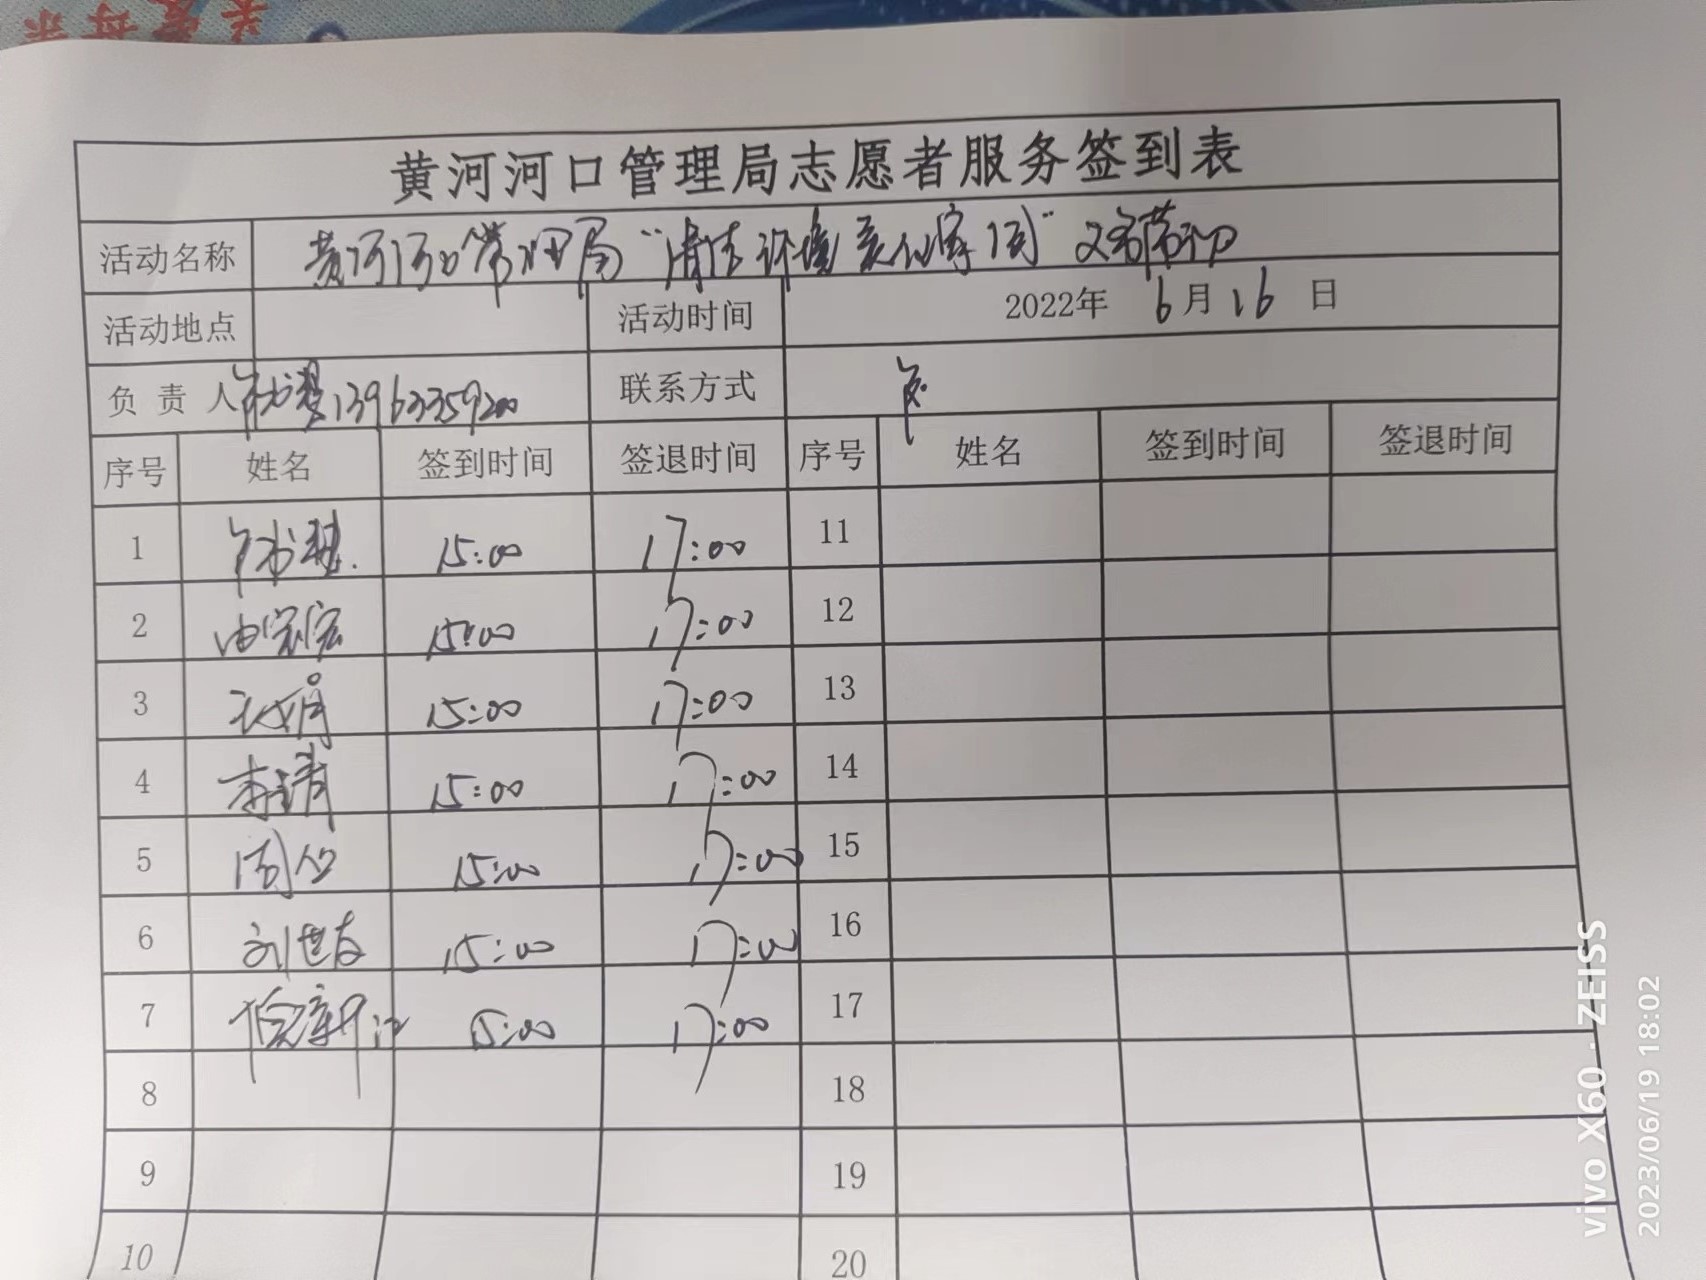 黄河河口管理局志愿者服务签到表
活动名称 黄河河口管理局“清洁环境 美化家园”
活动地点 活动时间 2022年 6月16日
负责人 13963359200 联系方式
序号 姓名 签到时间 签退时间 序号 姓名 签到时间 签退时间
1 15:00 17:00 11
2 15:00 17:00 12
3 15:00 17:00 13
4 李靖 15:00 17:00 14
5 15:00 17:00 15
6 刘世友 15:00 17:00 16
7 15:00 17:00 17
8 18
9 19
10 20
vivo X60 · ZEISS
2023/06/19 18:02